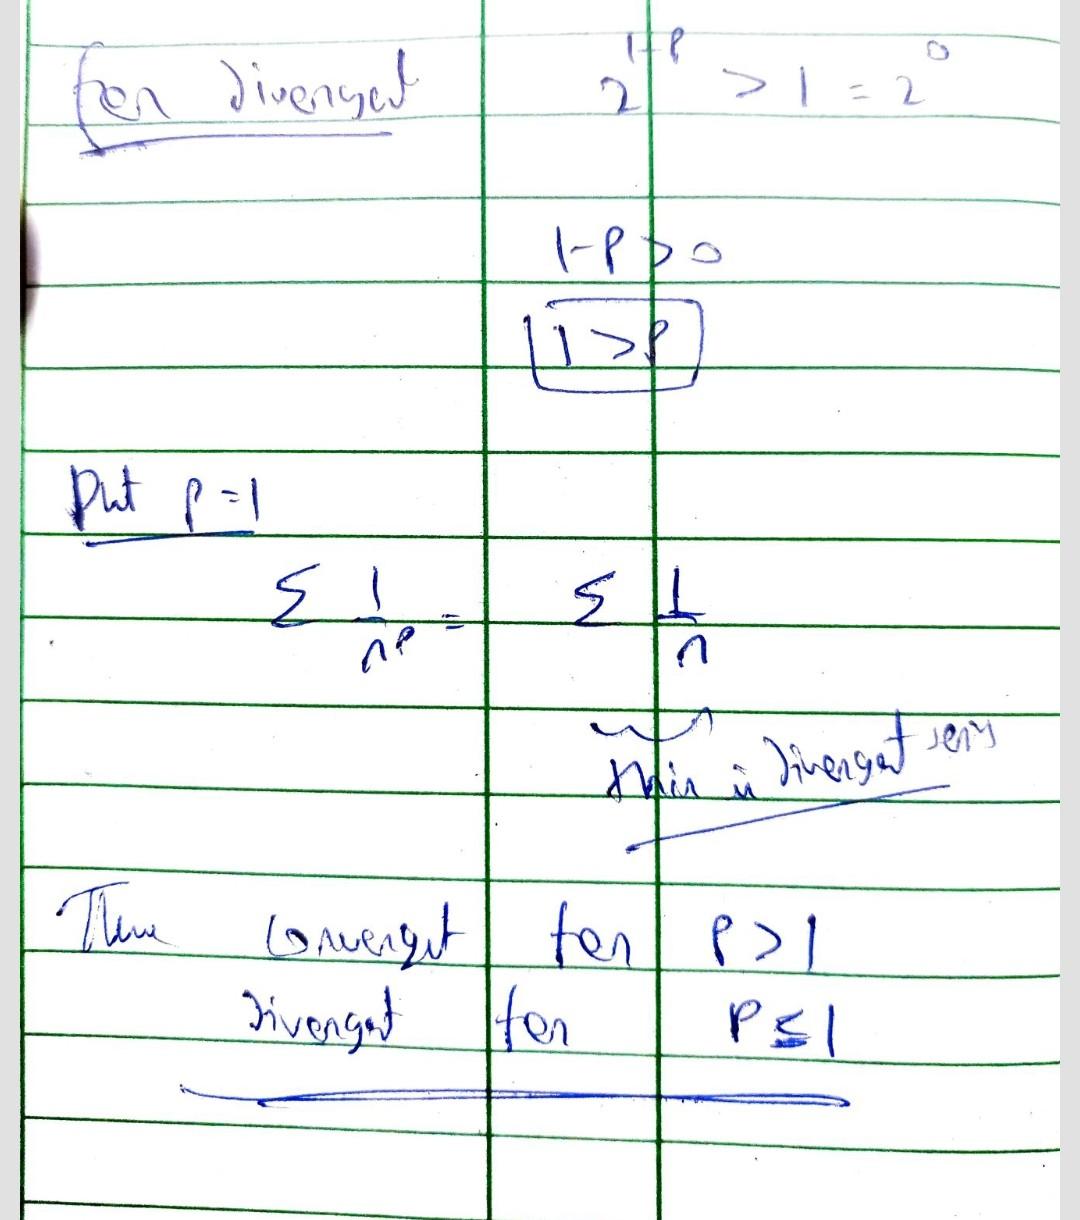 for divergent 2^{1-P} > 1 = 2^0
1-P > 0
1 > P
Put P = 1
Σ 1/n^P = Σ 1/n
this is divergent
convergent for P > 1
divergent for P ≤ 1